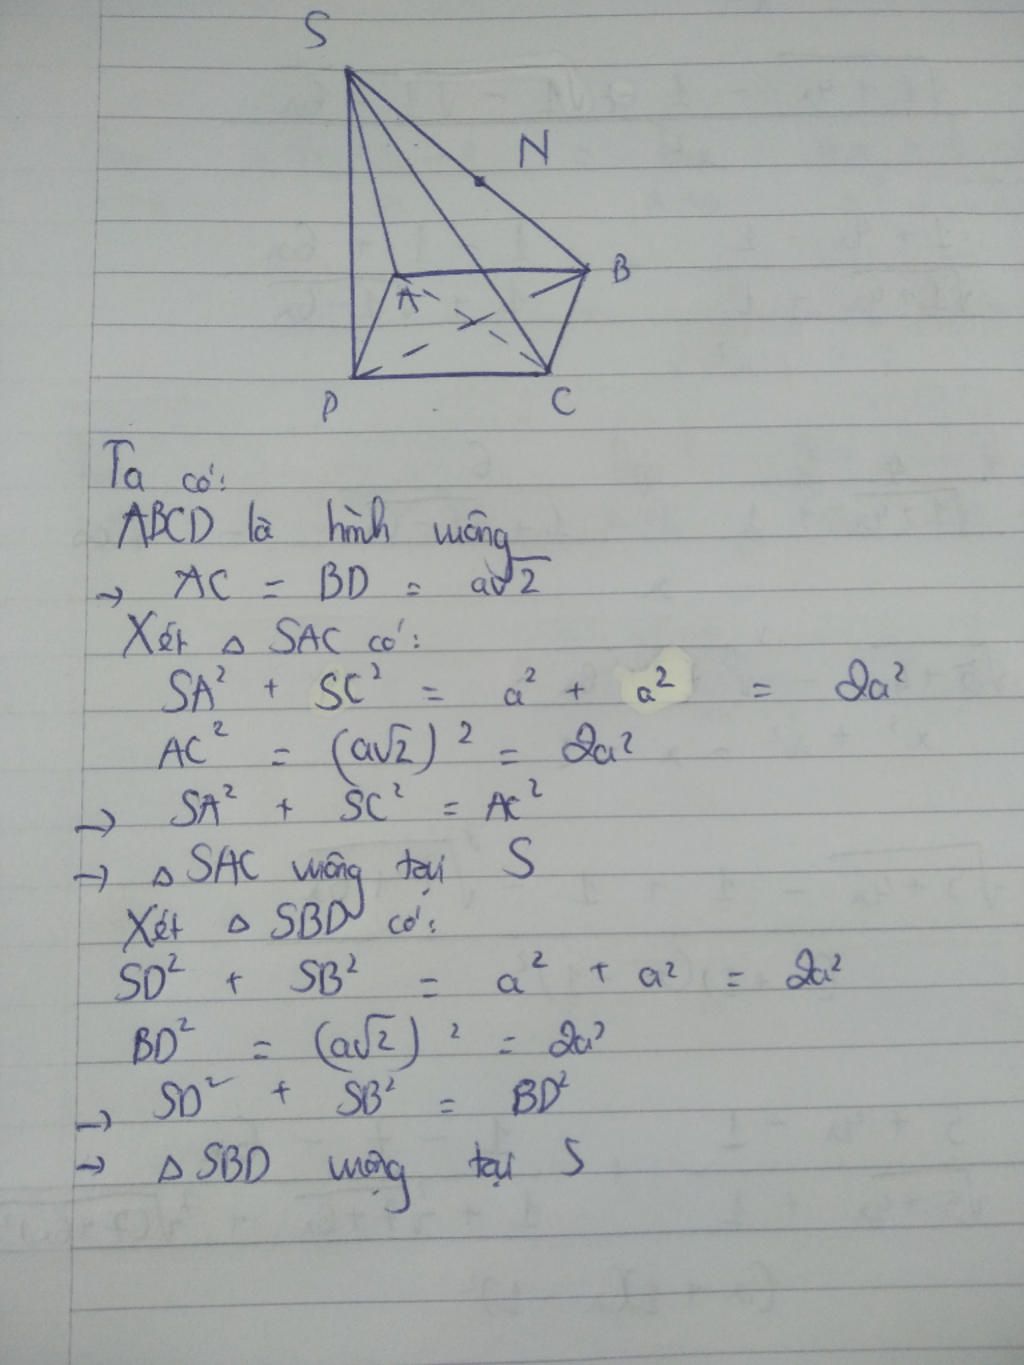 S
N
B
A
D
C
Ta có:
ABCD là hình vuông
→ AC = BD = a√2
Xét △ SAC có:
SA² + SC² = a² + a² = 2a²
AC² = (a√2)² = 2a²
→ SA² + SC² = AC²
→ △ SAC vuông tại S
Xét △ SBD có:
SD² + SB² = a² + a² = 2a²
BD² = (a√2)² = 2a²
→ SD² + SB² = BD²
→ △ SBD vuông tại S